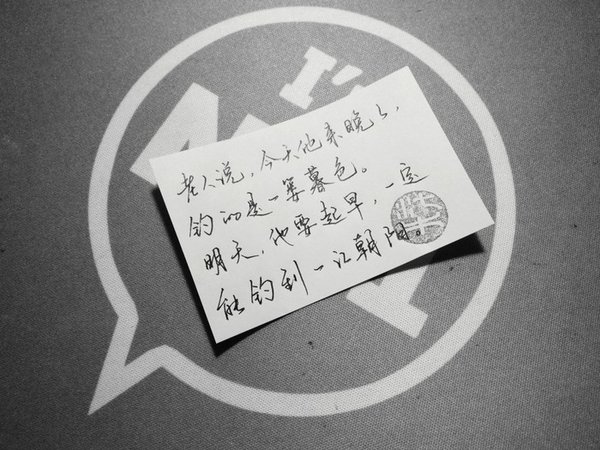 I'
老人说，今天他来晚了，
钓的是一篓暮色。
明天，他要起早，一定
能钓到一江朝阳。